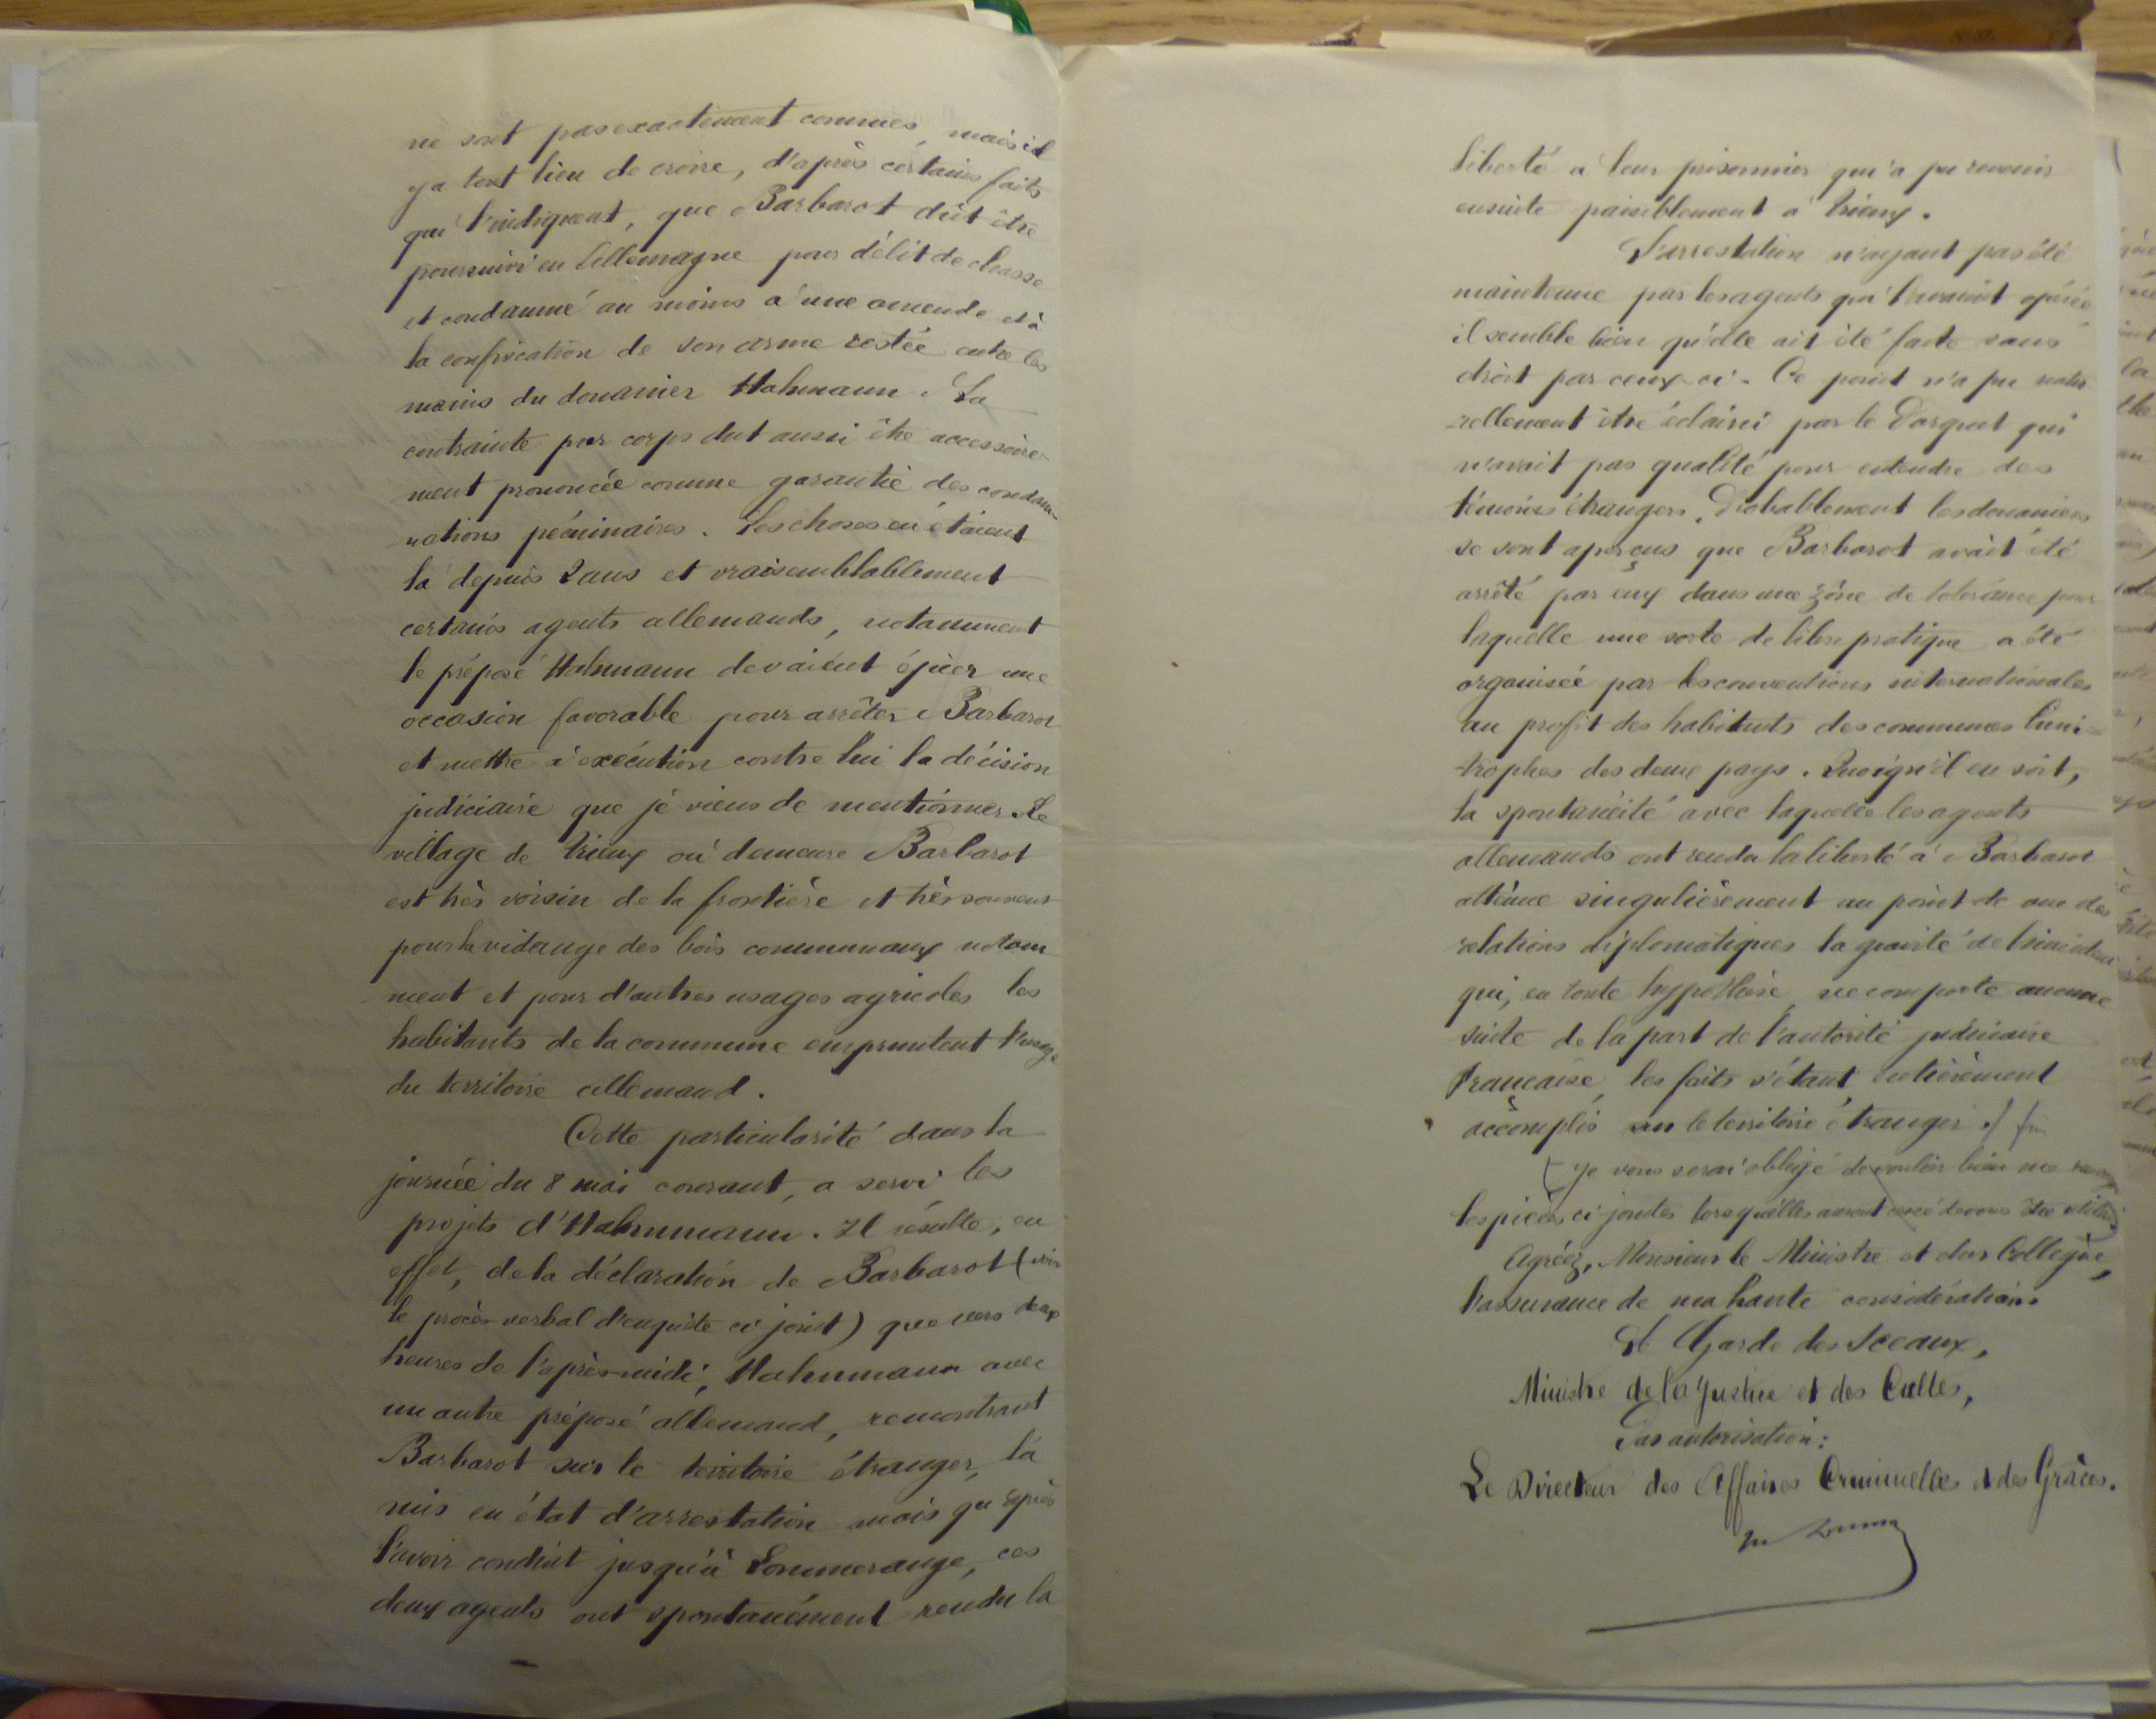 ne sont pas exactement connues, mais il
y a tout lieu de croire, d'après certains faits
qui l'indiquent, que Barbarot dût être
poursuivi en Allemagne pour délit de chasse
et condamné au moins à une amende et à
la confiscation de son arme restée entre les
mains du douanier Hahnmann. La
contrainte par corps dut aussi être accessoire-
ment prononcée comme garantie des condam-
nations pécuniaires. Les choses en étaient
là depuis 2 ans et vraisemblablement
certains agents allemands, notamment
le préposé Hahnmann devaient épier une
occasion favorable pour arrêter Barbarot
et mettre à exécution contre lui la décision
judiciaire que je viens de mentionner. Le
village de Trieux où demeure Barbarot
est très voisin de la frontière et très souvent
pour la vidange des bois communaux notam
ment et pour d'autres usages agricoles les
habitants de la commune empruntent l'usage
du territoire allemand.
Cette particularité dans la
journée du 8 mai courant, a servi les
projets d'Hahnmann. Il résulte, en
effet, de la déclaration de Barbarot (voir
le procès-verbal d'enquête ci joint) que vers deux
heures de l'après-midi, Hahnmann avec
un autre préposé allemand, remontrant
Barbarot sur le territoire étranger, l'a
mis en état d'arrestation mais qu'après
l'avoir conduit jusqu'à Lommerange, ces
deux agents ont spontanément rendu la
liberté à leur prisonnier qui a pu revenir
ensuite paisiblement à Trieux.
L'arrestation n'ayant pas été
maintenue par les agents qui l'avaient opérée,
il semble bien qu'elle ait été faite sans
droit par ceux-ci. Ce point n'a pu natu
rellement être éclairci par le Parquet qui
n'avait pas qualité pour entendre des
témoins étrangers. Probablement les douaniers
se sont aperçus que Barbarot avait été
arrêté par eux dans une zône de tolérance pour
laquelle une sorte de libre pratique a été
organisée par les conventions internationales
au profit des habitants des communes limi-
trophes des deux pays. Quoiqu'il en soit,
la spontanéité avec laquelle les agents
allemands ont rendu la liberté à Barbarot
atténue singulièrement au point de vue des
relations diplomatiques la gravité de l'incident
qui, en toute hypothèse, ne comporte aucune
suite de la part de l'autorité judiciaire
Française, les faits s'étant entièrement
accomplis sur le territoire étranger ./ fin
(Je vous serai obligé de vouloir bien me
les pièces ci jointes lorsqu'elles auront cessé de vous être utiles)
Agréez, Monsieur le Ministre et cher Collègue,
l'assurance de ma haute considération.
Le Garde des Sceaux,
Ministre de la Justice et des Cultes,
Par autorisation:
Le Directeur des Affaires Criminelles et des Grâces.